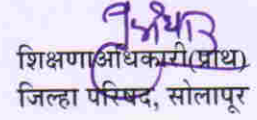 शिक्षणाधिकारी(प्राथ)
जिल्हा परिषद, सोलापूर